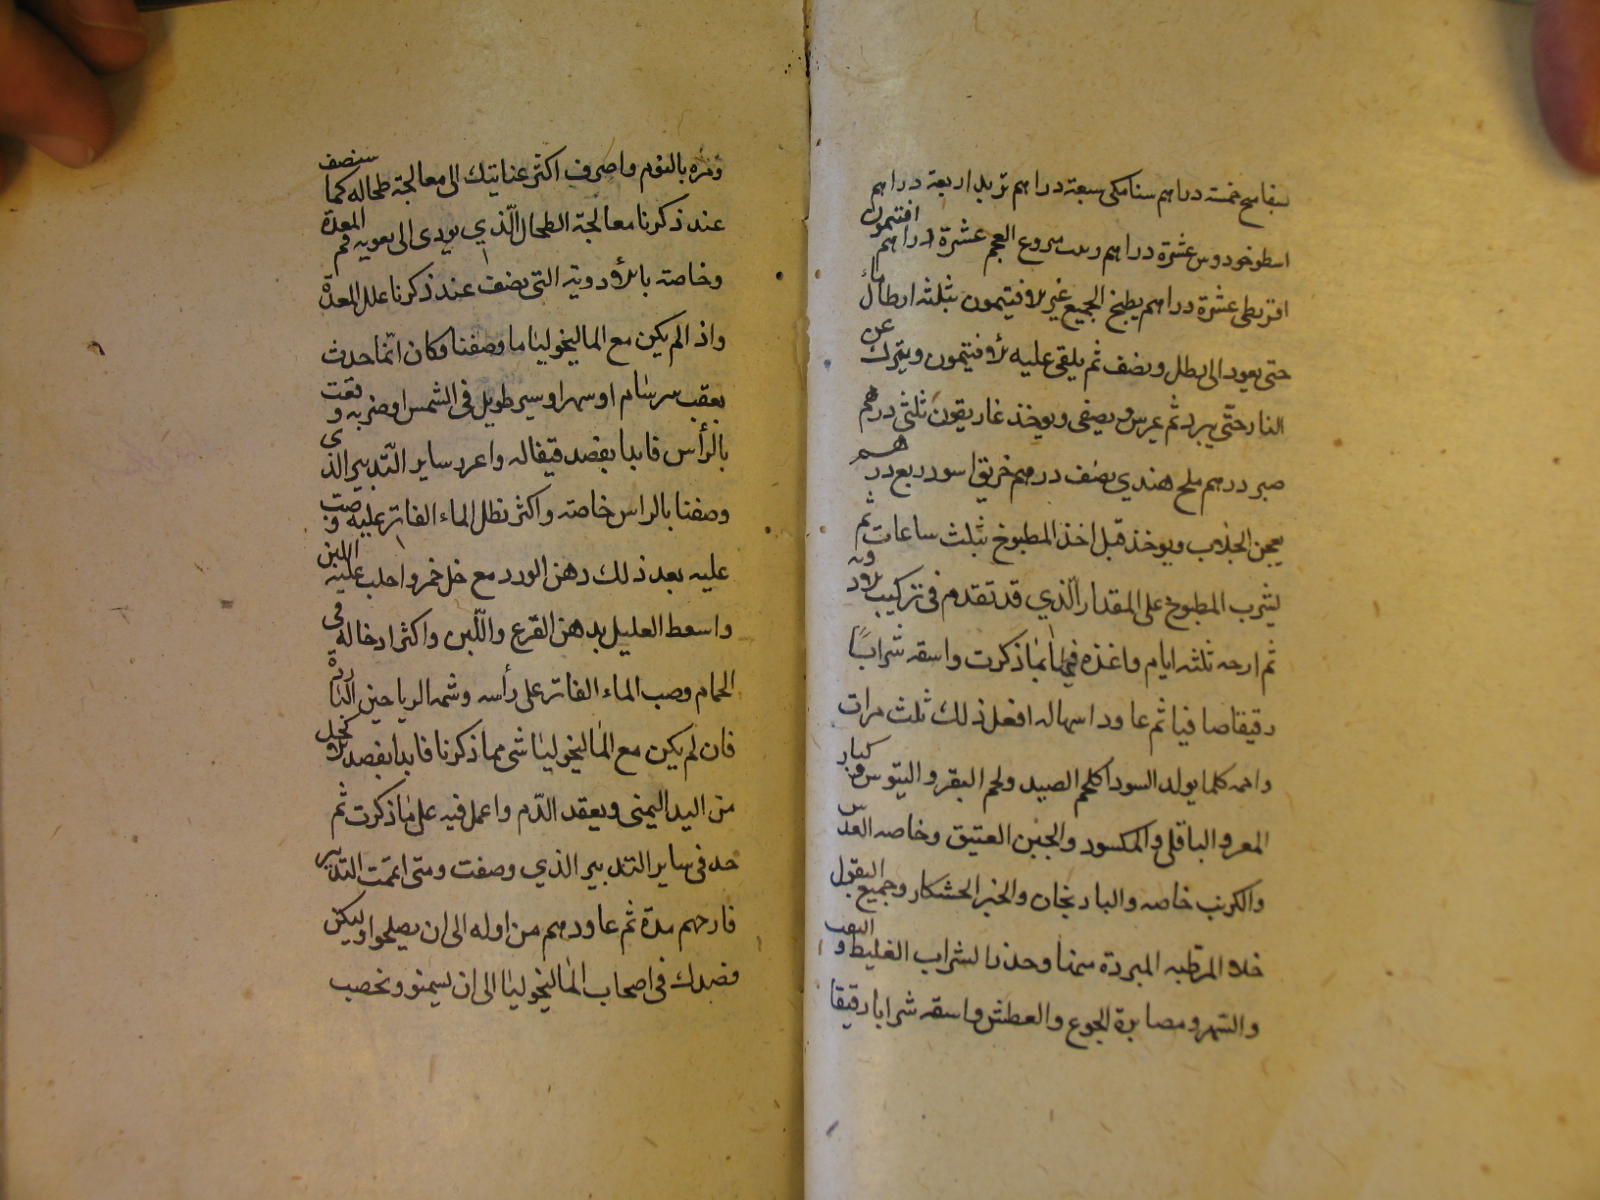 بسفايج خمسة دراهم سنامكى سبعة دراهم تربد اربعة دراهم
اسطوخودوس عشرة دراهم العجم عشرة دراهم افتيمون
اقريطى عشرة دراهم يطبخ الجميع غير الافيتمون بثلثه ارطال ماء
حتى يعود الى رطل ونصف ثم يلقى عليه الافيتمون ويترك عن
النار حتّى يبرد ثم يمرس ويصفى ويوخذ غاريقون ثلثى درهم
صبر درهم ملح هندي نصف درهم خربق اسود ربع درهم
يعجن الجلاب ويوخذ قبل اخذ المطبوخ بثلث ساعات ثم
يشرب المطبوخ على المقدار الّذي قد تقدم فى تركيب الادويه
ثم ارحه ثلثه ايام واغذه فيها بما ذكرت واسقه شرابًا
رقيقا صافيا ثم عاود اسهاله افعل ذلك ثلث مرات
واحمه كلما يولد السودا كلحم الصيد ولحم البقر والتيوس وكبار
المعز والباقلى والمكسود والجبن العتيق وخاصه العدس
والكرنب خاصه والبادنجان والخبز الخشكار وجميع البقول
خلا المرطبه المبردة الشراب الغليظ والتعب
والسهر ومصابرة الجوع والعطش واسقه شرابا رقيقا
ومره بالنوم واصرف اكثر عنايتك الى معالجة طحاله كما سنصف
عند ذكرنا معالجة الطحال الّذي يودى الى تقويه فم المعدة
وخاصته بالادويه التى نصف عند ذكرنا علل المعدة
واذا لم يكن مع الماليخوليا ما وصفنا وكان انّما حدث
بعقب سرسام او سهر او سير طويل فى الشمس او ضربه وقعت
بالرأس فابدا بفصد قيفاله واعرد ساير التّدبير الذى
وصفنا بالراس خاصته واكثر نطل الماء الفاتر عليه وصب
عليه بعد ذلك دهن الورد مع خل خمر واحلب عليه اللبن
واسعط العليل بدهن القرع واللّبن واكثر ادخاله فى
الحمام وصب الماء الفاتر على رأسه وشمه الرياحين الباردة
فان لم يكن مع الماليخوليا شى مما ذكرنا فابدا بفصد الاكحل
من اليد اليمنى وبعقد الدّم واعمل فيه على ما ذكرت ثم
خد فى ساير التدبير الذي وصفت ومتى اتممت التدبير
فارحهم مدة ثم عاودهم من اوله الى ان يصلحوا وليكن
قصدك فى اصحاب الماليخوليا الى ان يسمنو وتخصب